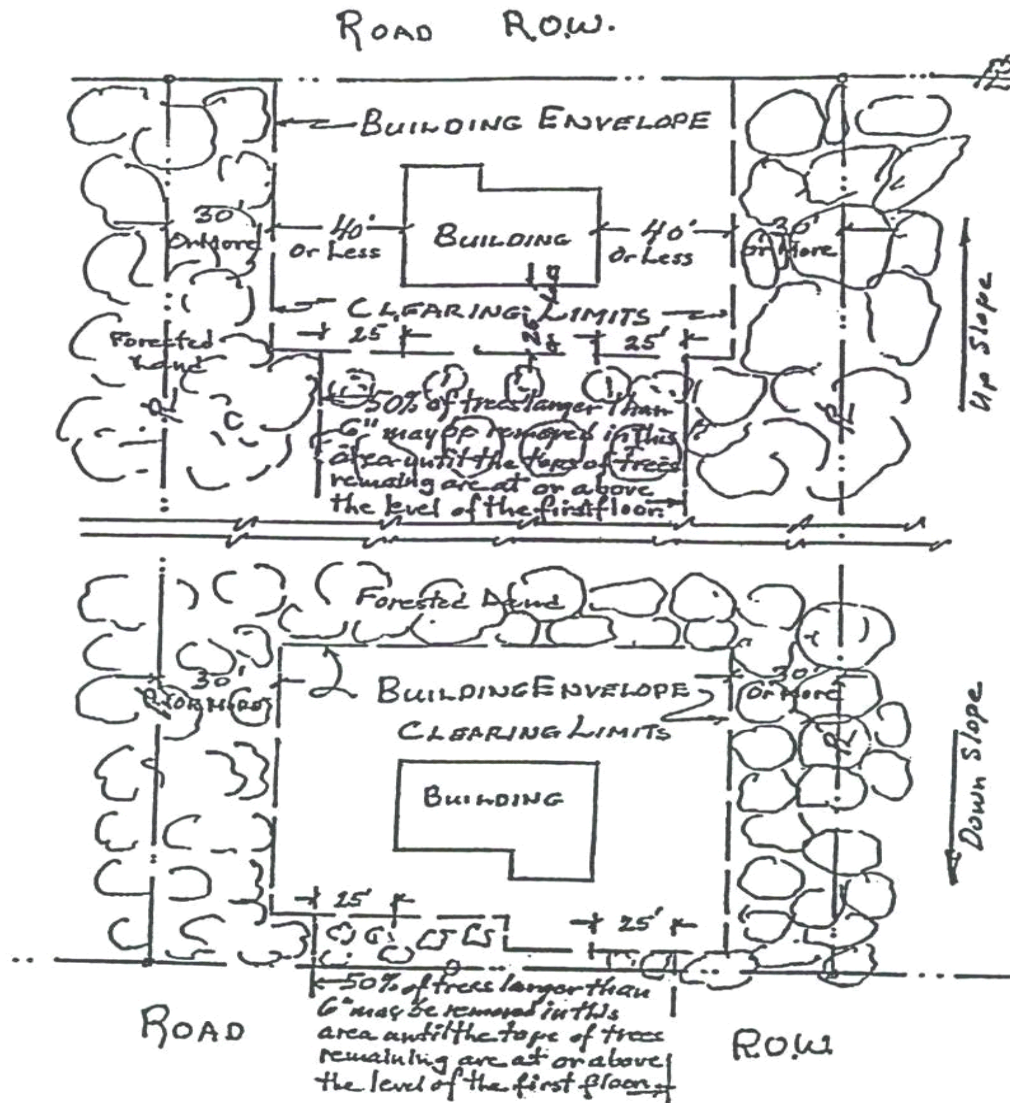 ROAD R.O.W.
BUILDING ENVELOPE
30'
Or More
40'
Or Less
BUILDING
40'
Or Less
30'
Or More
CLEARING LIMITS
25'
25'
Up Slope
Forested
Land
50% of trees larger than
6" may be removed in this
area until the tops of trees
remaining are at or above
the level of the first floor.
Forested Land
30'
OR MORE
BUILDING ENVELOPE
CLEARING LIMITS
30'
Or More
BUILDING
Down Slope
25'
25'
50% of trees larger than
6" may be removed in this
area until the tops of trees
remaining are at or above
the level of the first floor.
ROAD R.O.W.